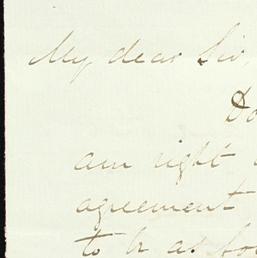 My dear Sir,
Do
am right
agreement
to be as